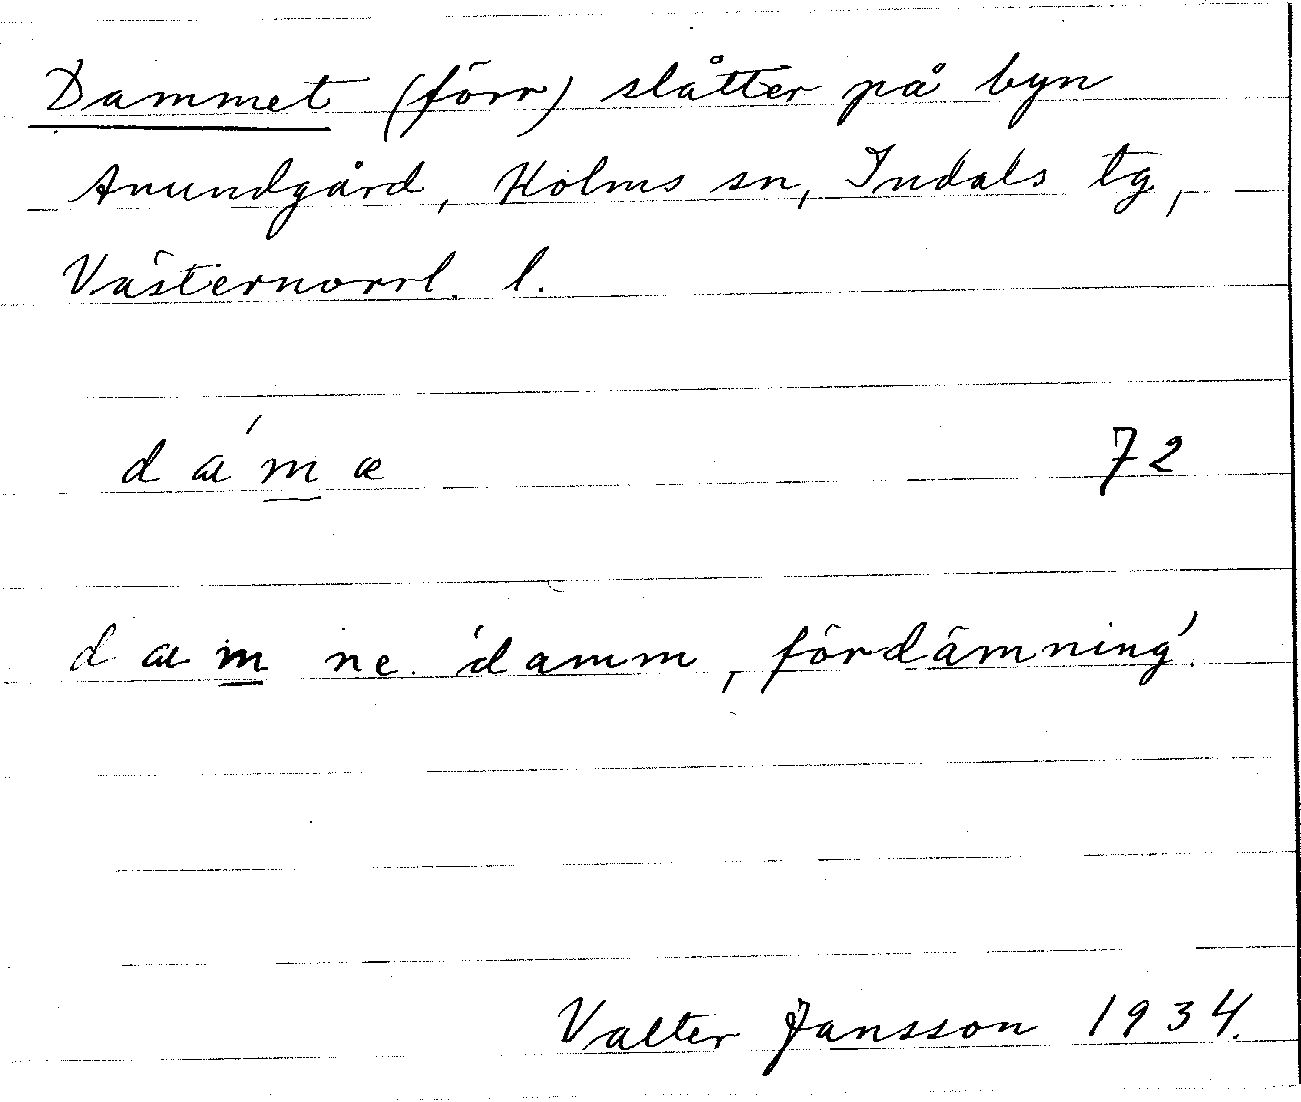 Dammet (förr) slåtter på byn
Anundgård, Holms sn, Indals tg,
Västernorrl. l.
dæ´mæ 72
dæm ne. 'damm, fördämning'.
Valter Jansson 1934.